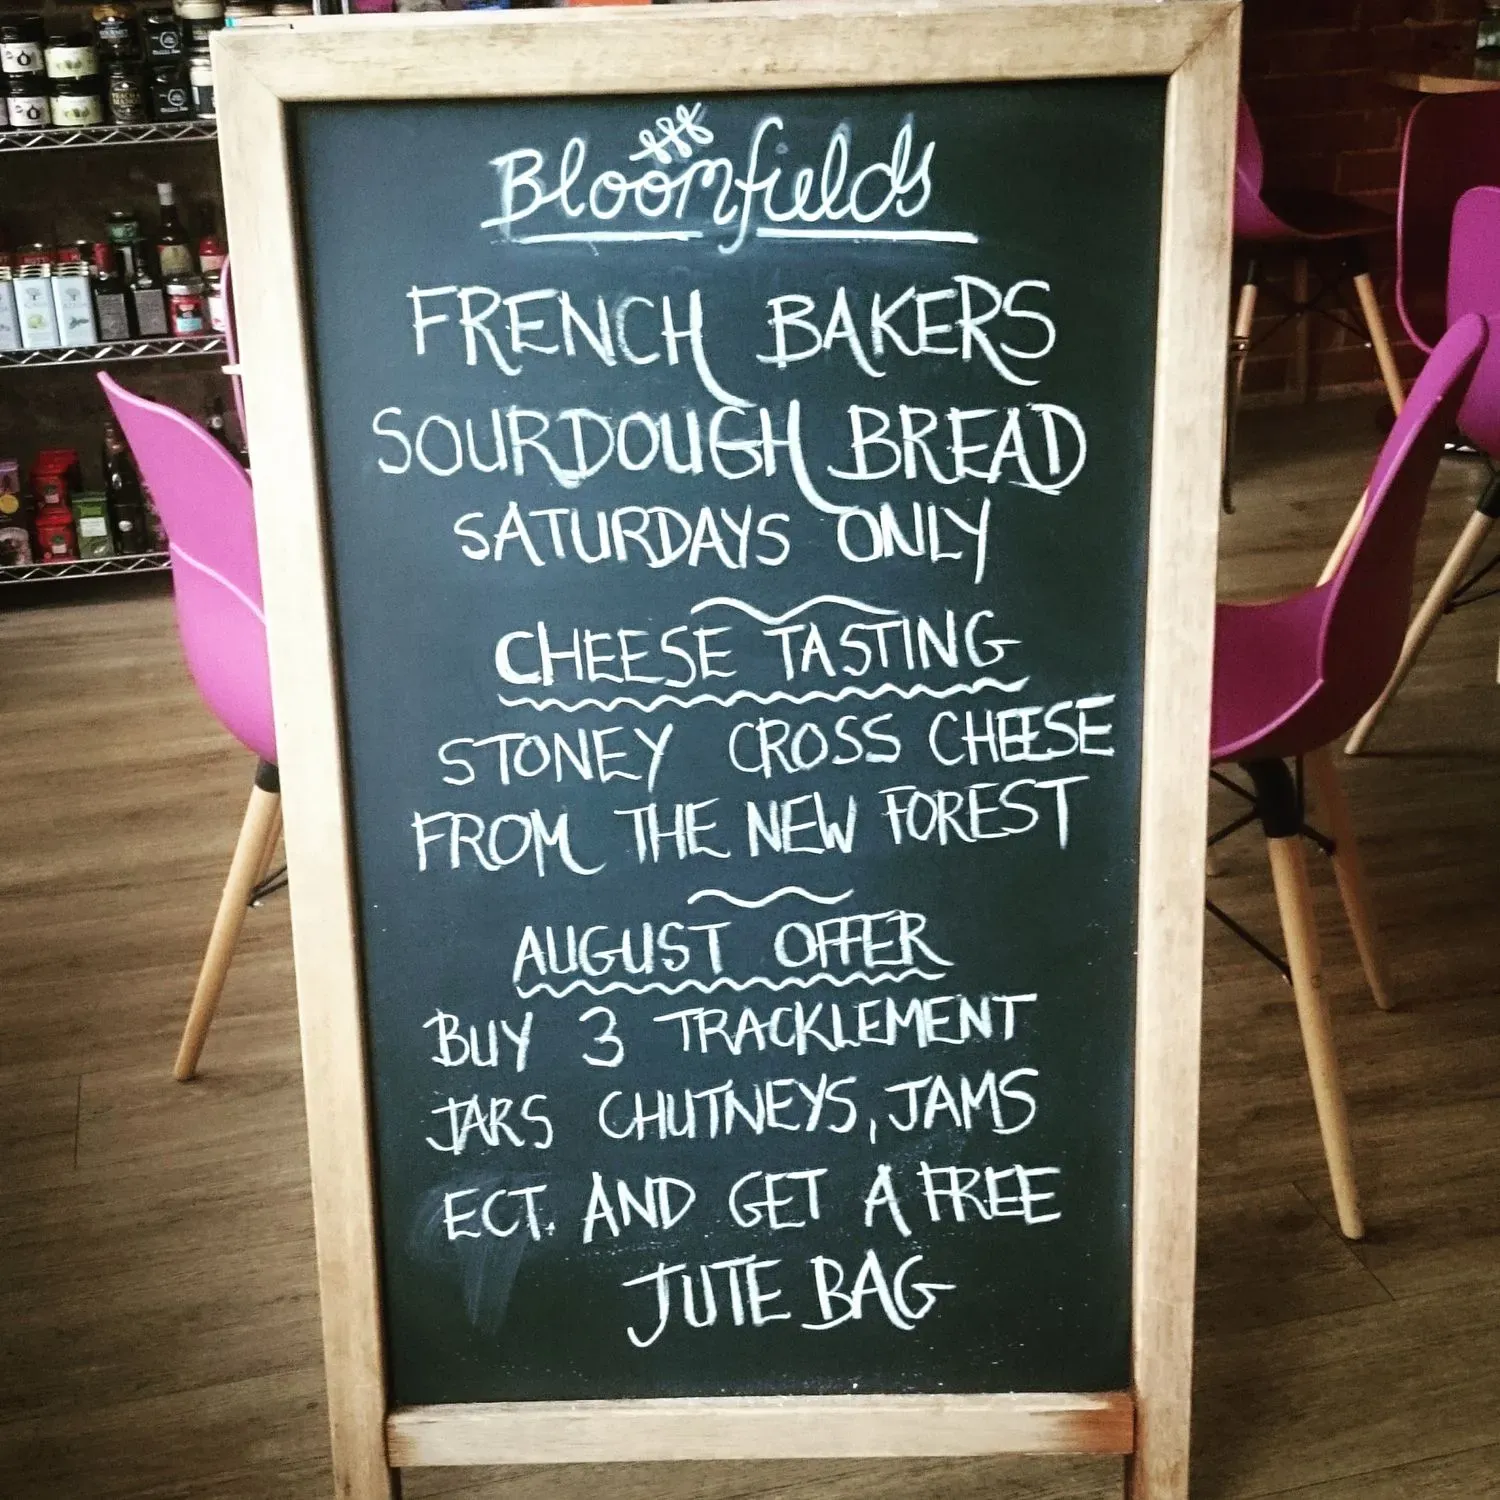 Bloomfields
FRENCH BAKERS
SOURDOUGH BREAD
SATURDAYS ONLY
CHEESE TASTING
STONEY CROSS CHEESE
FROM THE NEW FOREST
AUGUST OFFER
BUY 3 TRACKLEMENT
JARS CHUTNEYS, JAMS
ECT. AND GET A FREE
JUTE BAG